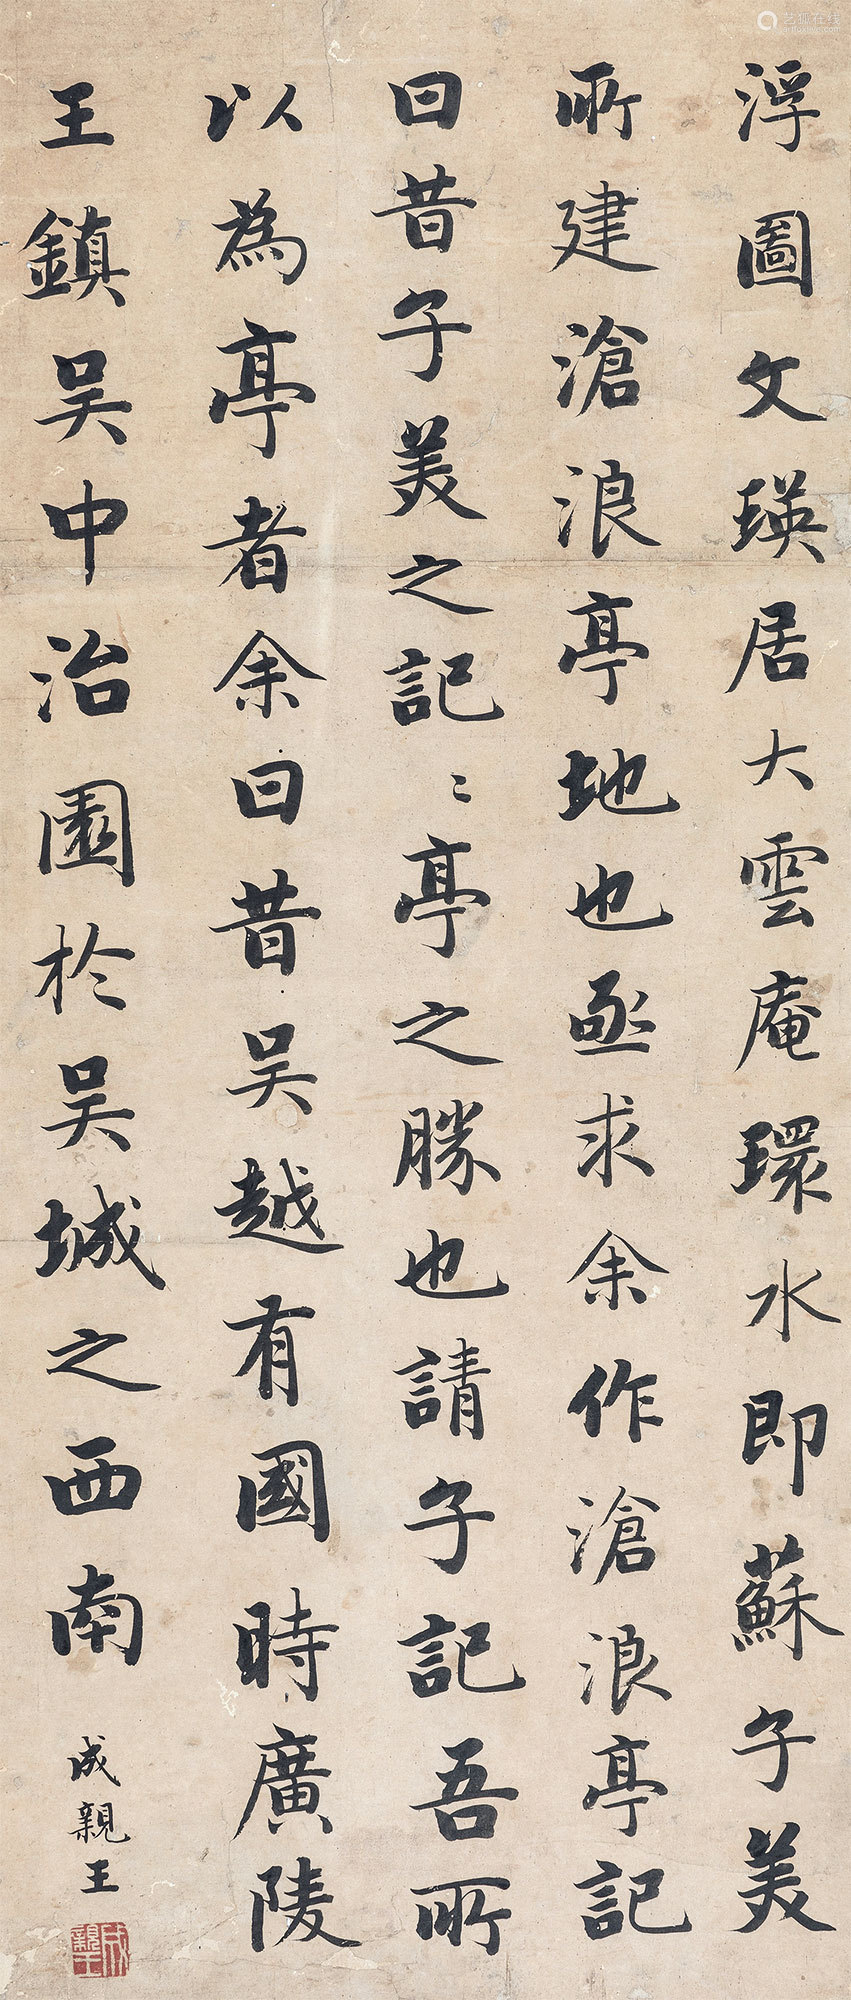 浮圖文瑛居大雲庵環水即蘇子美
所建滄浪亭地也亟求余作滄浪亭記
曰昔子美之記〻亭之勝也請子記吾所
以為亭者余曰昔吳越有國時廣陵
王鎮吳中治園於吳城之西南
成親王
成親王
艺狐在线
artfoxlive.com